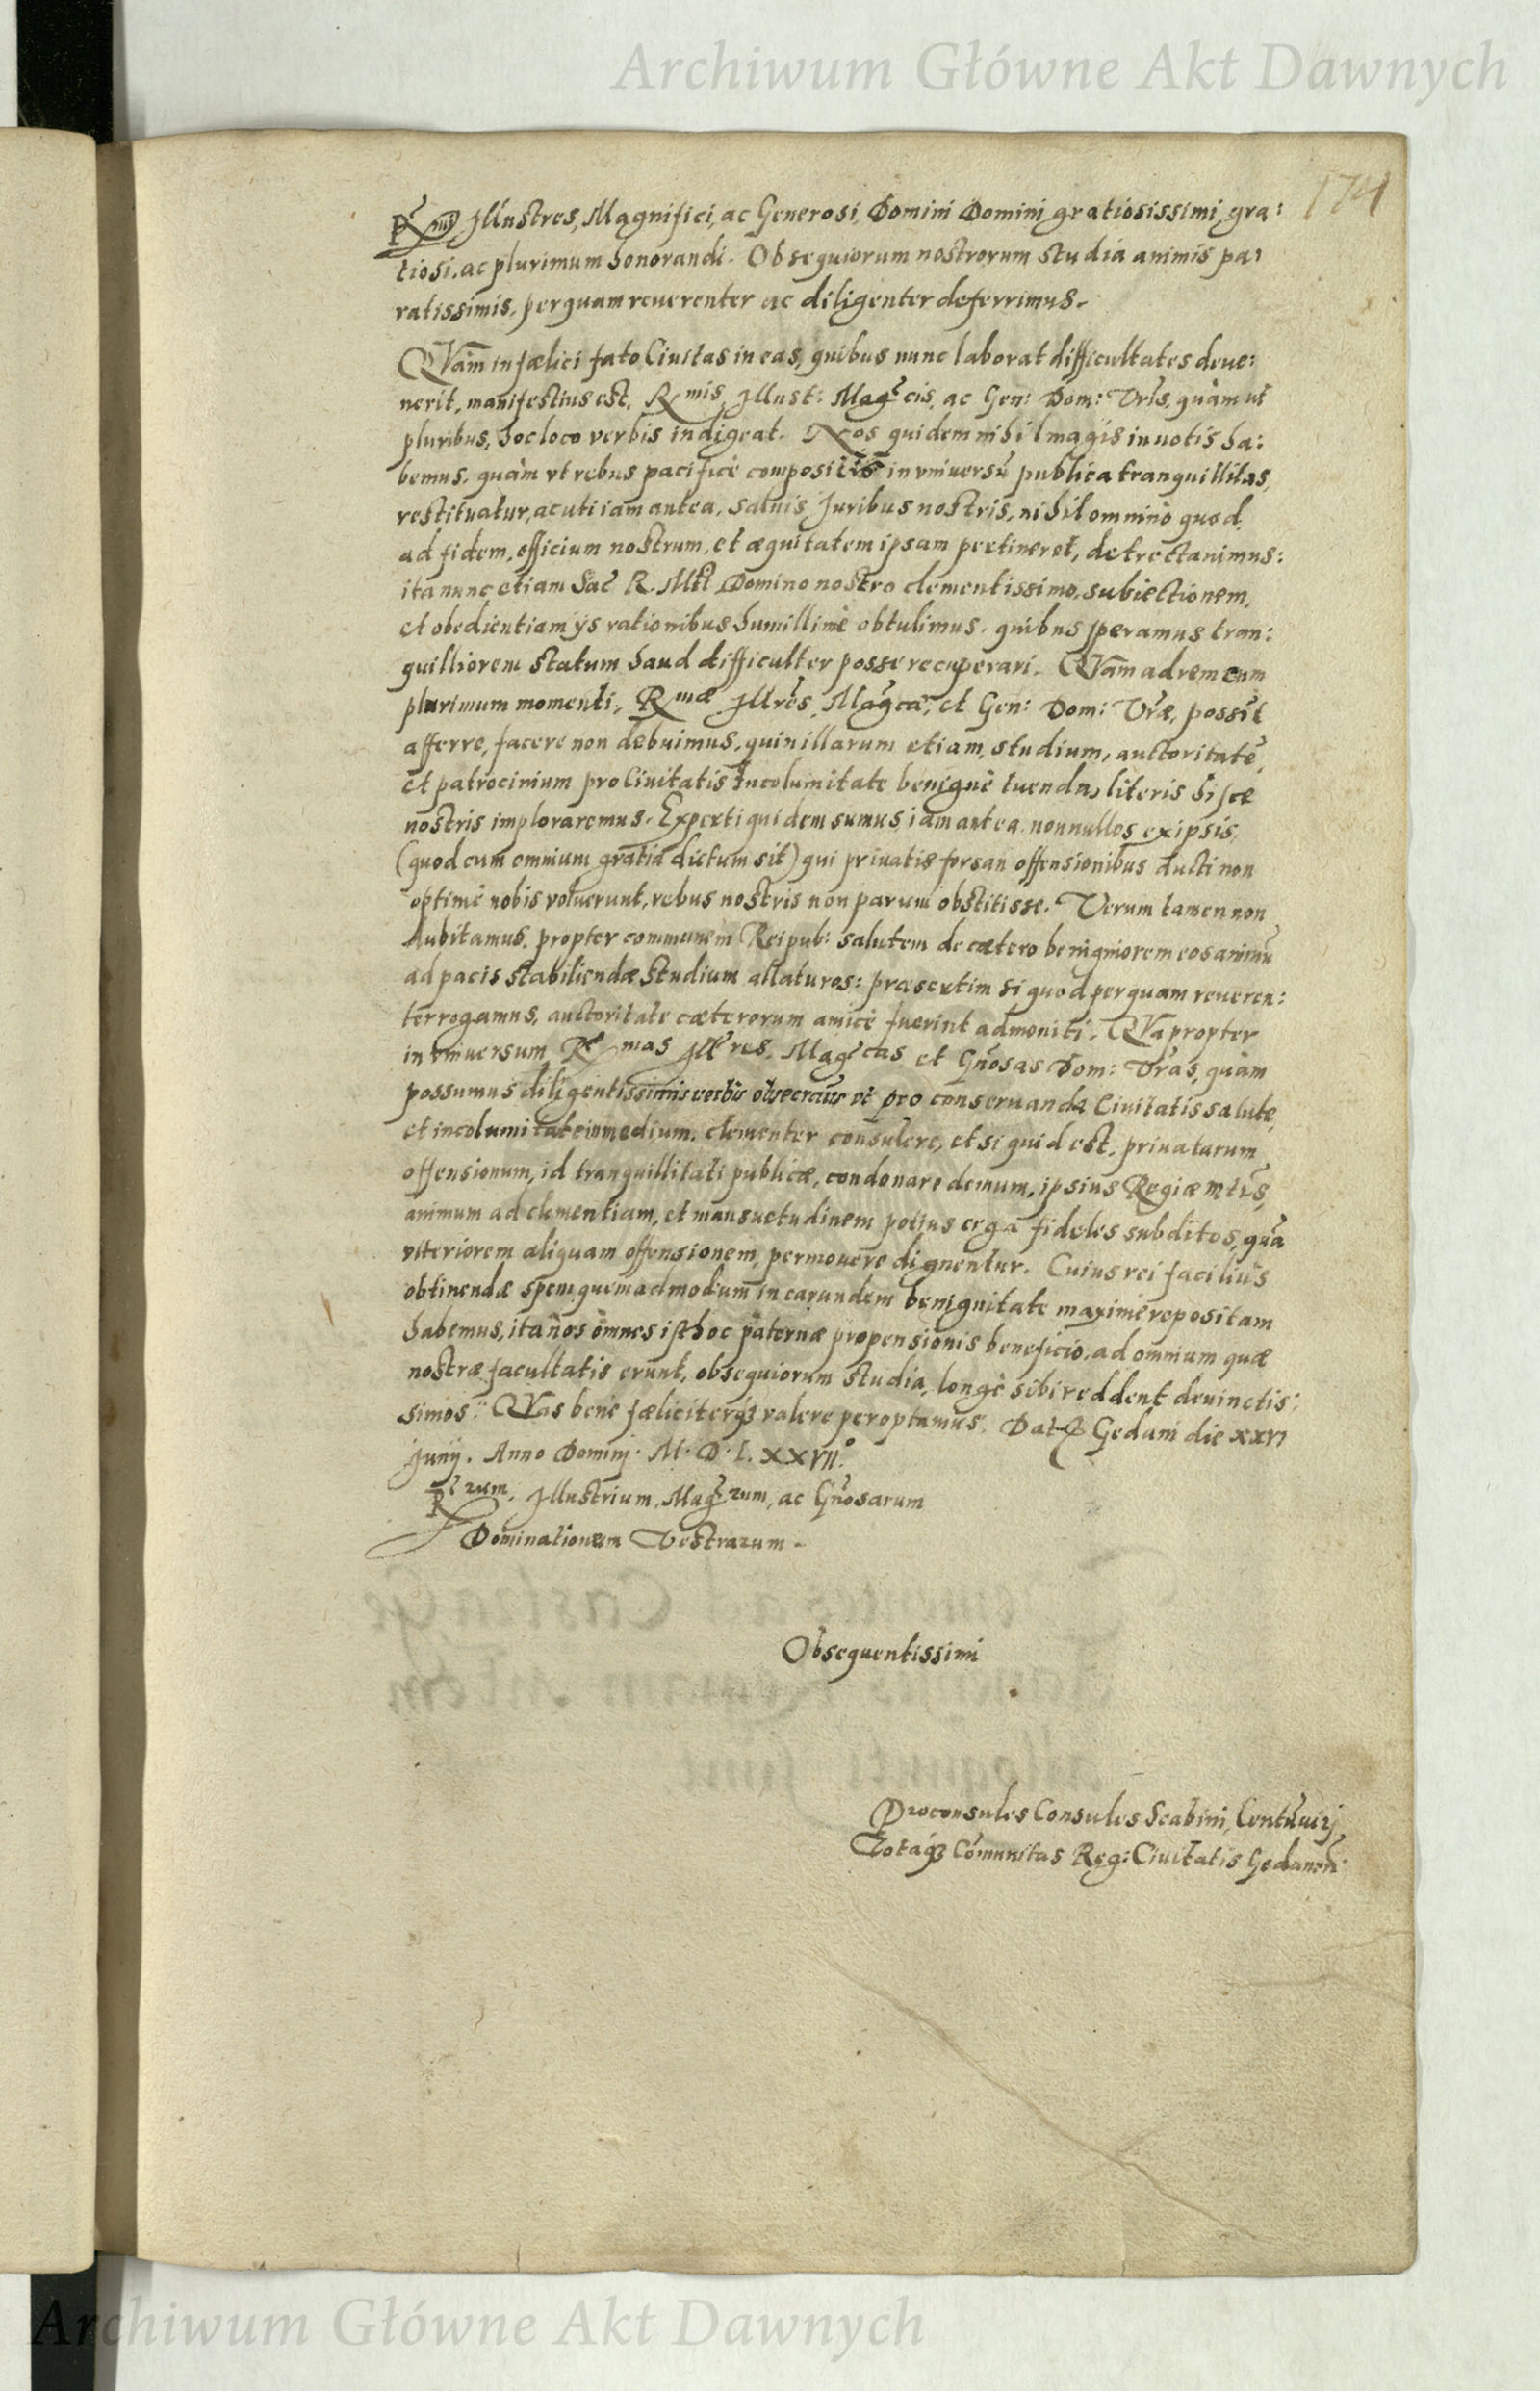 Archiwum Główne Akt Dawnych
174
Rmi Illustres, Magnifici, ac Generosi, Domini Domini gratiosissimi, gra:
tiosi, ac plurimum honorandi. Obsequiorum nostrorum studia animis pa:
ratissimis, perquam reuerenter ac diligenter deferrimus.
QVam infælici fato Ciuitas in eas, quibus nunc laborat difficultates deue:
nerit, manifestius est, Rmis, Illust: Magcis, ac Gen: Dom: Vrīs, quàm ut
pluribus, hoc loco verbis indigeat. Nos quidem nihil magis in uotis ha:
bemus, quàm vt rebus pacificè compositis in vniuersū publica tranquillitas,
restituatur, ac uti iam antea, saluis Juribus nostris, nihil omnino quod,
ad fidem, officium nostrum, et æquitatem ipsam pertineret, detrectauimus:
ita nunc etiam Sac R. Mti Domino nostro clementissimo, subiectionem,
et obedientiam ijs rationibus humillimè obtulimus, quibus speramus tran:
quilliorem statum haud difficulter posse recuperari. QVam ad rem cum
plurimum momenti, Rmæ Illrēs, Magcæ, et Gen: Dom: Vræ, possīt
afferre, facere non debuimus, quin illarum etiam, studium, auctoritatē,
et patrocinium pro Ciuitatis Incolumitate benignè tuenda, literis hisce
nostris imploraremus. Experti quidem sumus iam antea, nonnullos ex ipsis,
(quod cum omnium gratia dictum sit) qui priuatis forsan offensionibus ducti non
optimè nobis voluerunt, rebus nostris non parum obstitisse. Verum tamen non
dubitamus, propter communem Reipub: salutem de cætero benigniorem eos animū
ad pacis stabiliendæ studium allaturos: præsertim si quod perquam reueren:
ter rogamus, auctoritate cæterorum amicè fuerint admoniti. QVapropter
in vniuersum Rmas Illres, Magcas et Gnōsas Dom: Vrās, quàm
possumus diligentissimis verbis obsecramus vt pro conseruanda Ciuitatis salute,
et incolumitate in medium, clementer consulere, et si quid est, priuatarum
offensionum, id tranquillitati publicæ, condonare demum, ipsius Regiæ Mtis,
animum ad clementiam, et mansuetudinem potius erga fideles subditos, quā
vlteriorem aliquam offensionem, permouere dignentur. Cuius rei facilius
obtinendæ spem quemadmodum in earundem benignitate maximè repositam
habemus, ita nos omnes isthoc paternæ propensionis beneficio, ad omnium quæ
nostræ facultatis erunt, obsequiorum studia, longè sibi reddent deuinctis:
simos. QVas benè fæliciterq3 valere peroptamus. Dat Gedani die xxvi
Junij. Anno Domini. M. D. L. xxvii.o
Rrum, Illustrium, Magrum, ac Gnōsarum
Dominationem Vestrarum.
Obsequentissimi
Proconsules Consules Scabini, Centūuirj
Totaq3 Cōmunitas Reg: Ciuitatis Gedanen̄.
Archiwum Główne Akt Dawnych